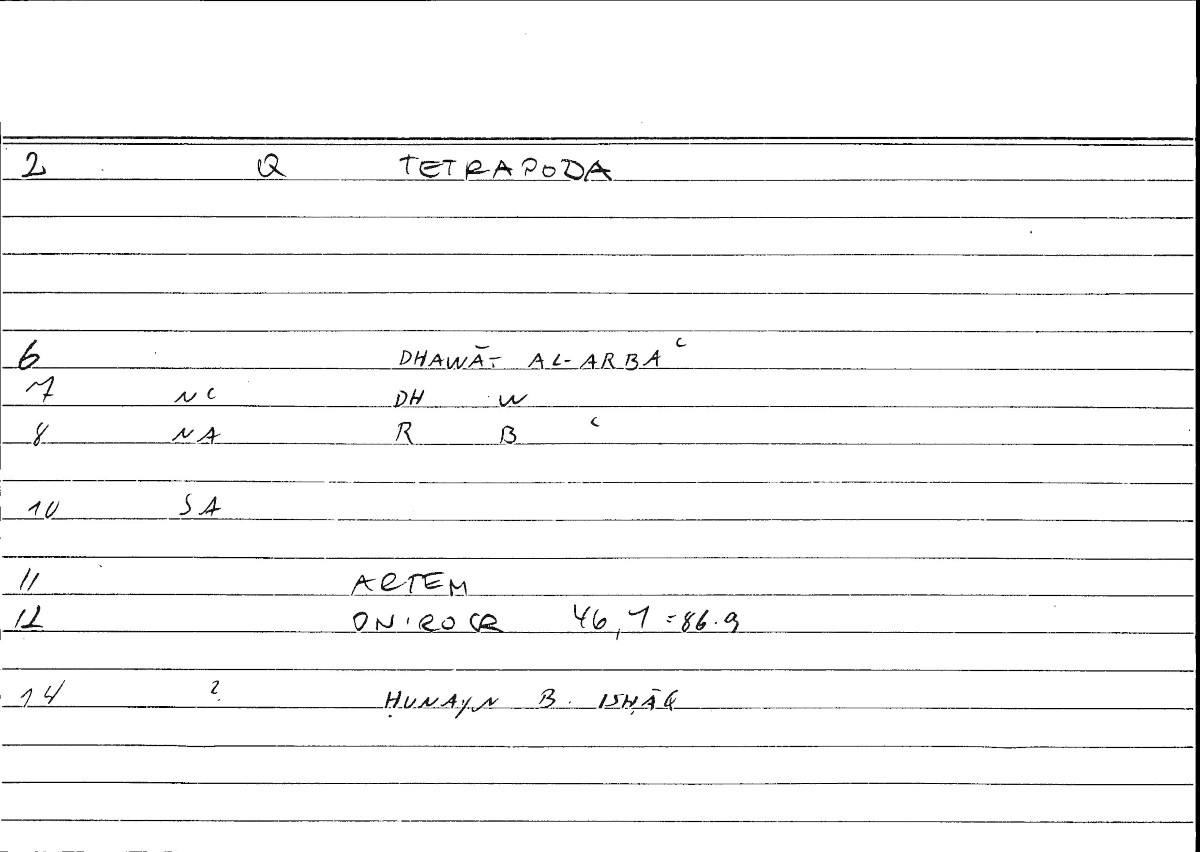 2 Q TETRAPODA
6 DHAWĀT AL-ARBAʿ
7 NC DH W
8 NA R B ʿ
10 SA
11 ARTEM
12 ONIROCR 46,7=86.9
14 ? ḤUNAYN B. ISḤĀQ